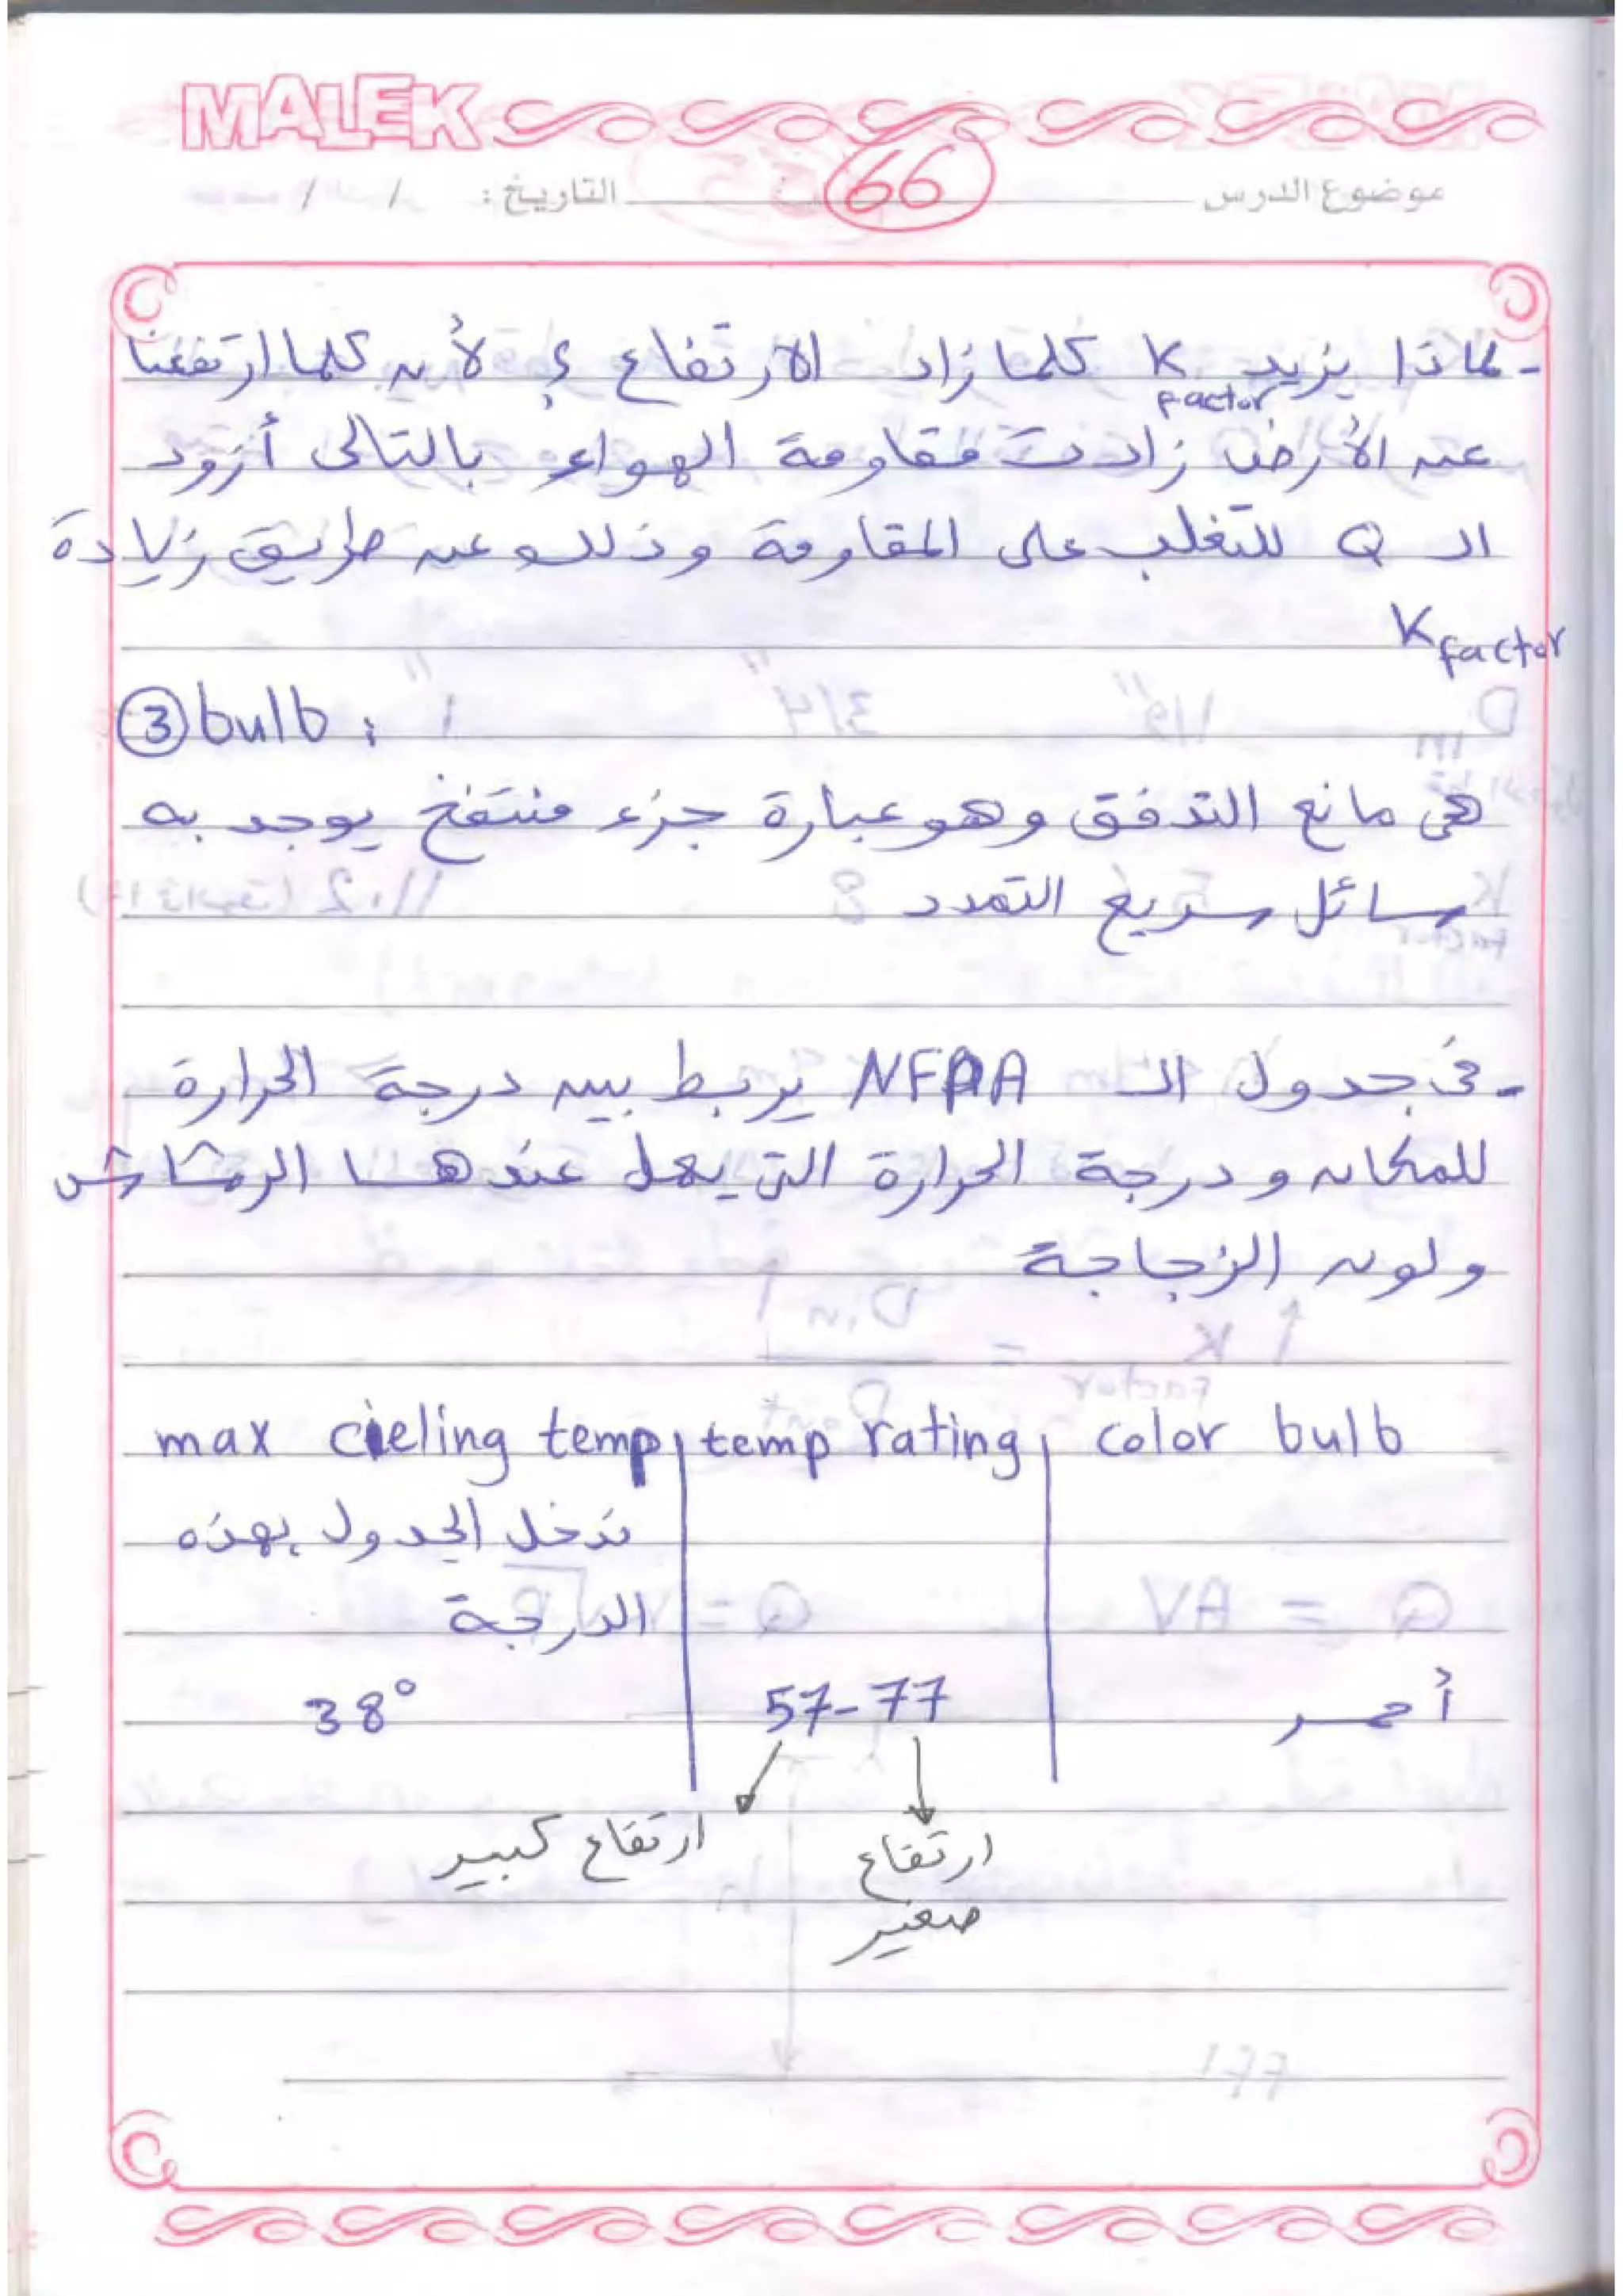 MALEK
موضوع الدرس 66 التاريخ: / /
- لماذا يزيد K factor كلما زاد الارتفاع ؟ لأن كلما ارتفعنا
عن الأرض زادت مقاومة الهواء بالتالى أزود
الـ Q للتغلب على المقاومة وذلك عن طريق زيادة
K factor
③ bulb :
هى مانع التدفق وهو عبارة جزء منتفخ يوجد به
سائل سريع التمدد
- فى جدول الـ NFPA يربط بين درجة الحرارة
للمكان ودرجة الحرارة التى يعمل عندها الرشاش
ولون الزجاجة
max cieling temp temp rating color bulb
ندخل الجدول بهذه
الدرجة
38° 57-77 أحمر
ارتفاع كبير ارتفاع
صغير